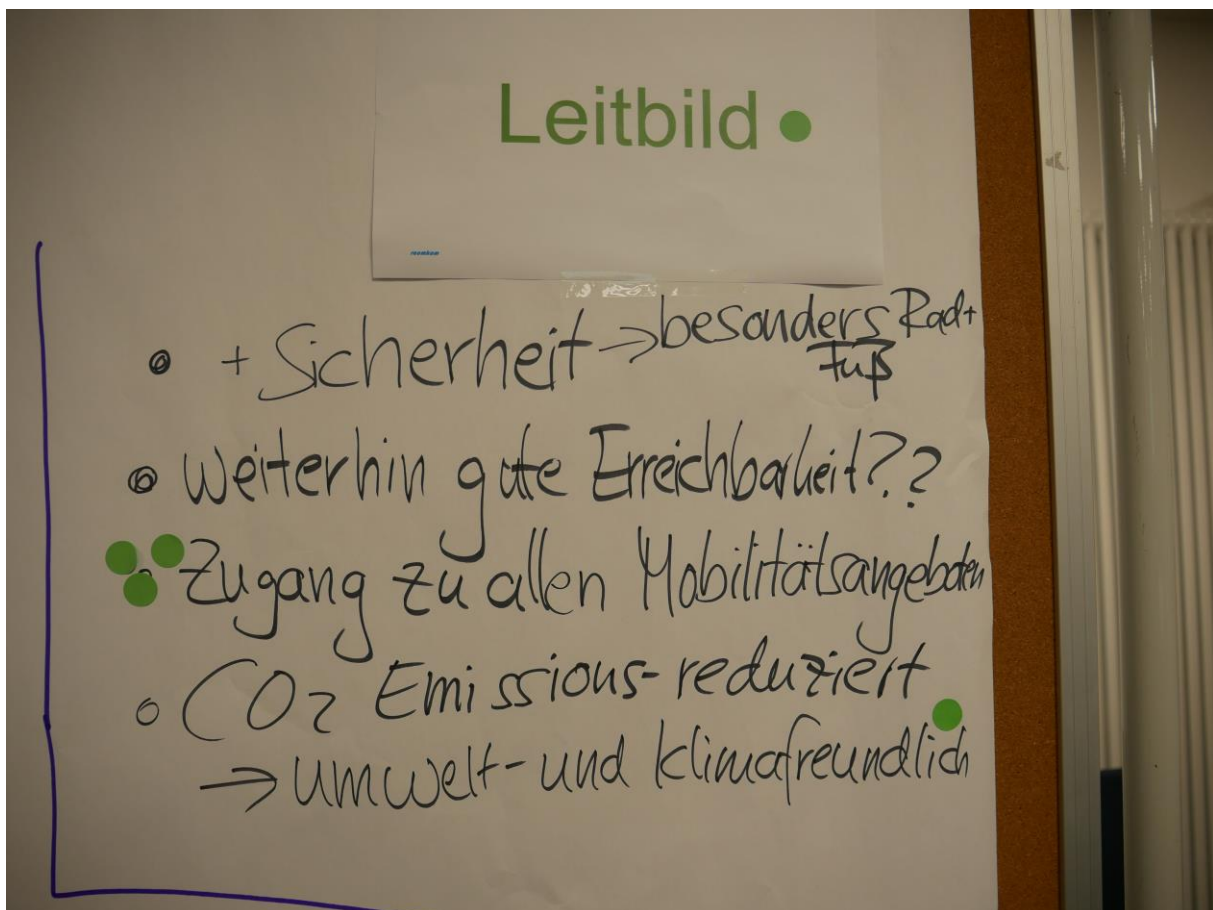 Leitbild
+ Sicherheit → besonders Rad+
Fuß
weiterhin gute Erreichbarkeit??
Zugang zu allen Mobilitätsangeboten
CO2 Emissions-reduziert
→ umwelt- und klimafreundlich